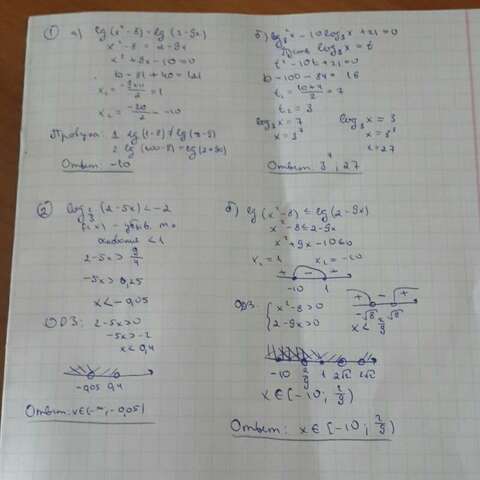 ① а) lg(x²-8) = lg(2-9x)
x²-8 = 2-9x
x²+9x-10=0
D=81+40=121
x₁ = (-9+11)/2 = 1
x₂ = -20/2 = -10
Проверка: 1. lg(1-8) ≠ lg(2-9)
2. lg(100-8) = lg(2+90)
Ответ: -10
б) log₃²x - 10log₃x + 21 = 0
Пусть log₃x = t
t²-10t+21=0
D=100-84=16
t₁ = (10+4)/2 = 7
t₂ = 3
log₃x = 7 log₃x = 3
x = 3⁷ x = 3³
x = 27
Ответ: 3⁷; 27
② (2-5x) < -2
f(x) - убыв. т.к.
основание < 1
2-5x > 9/4
-5x > 0,25
x < -0,05
ОДЗ: 2-5x>0
-5x>-2
x<0,4
-0,05 0,4
Ответ: x∈(-∞; -0,05)
б) lg(x²-8) ≤ lg(2-9x)
x²-8≤2-9x
x²+9x-10≤0
x₁=1 x₂=-10
+ - +
-10 1
ОДЗ: { x²-8>0
2-9x>0
+ - +
-√8 √8
x < 2/9
-10 2/9 1 2√2
x∈[-10; 2/9)
Ответ: x∈[-10; 2/9)